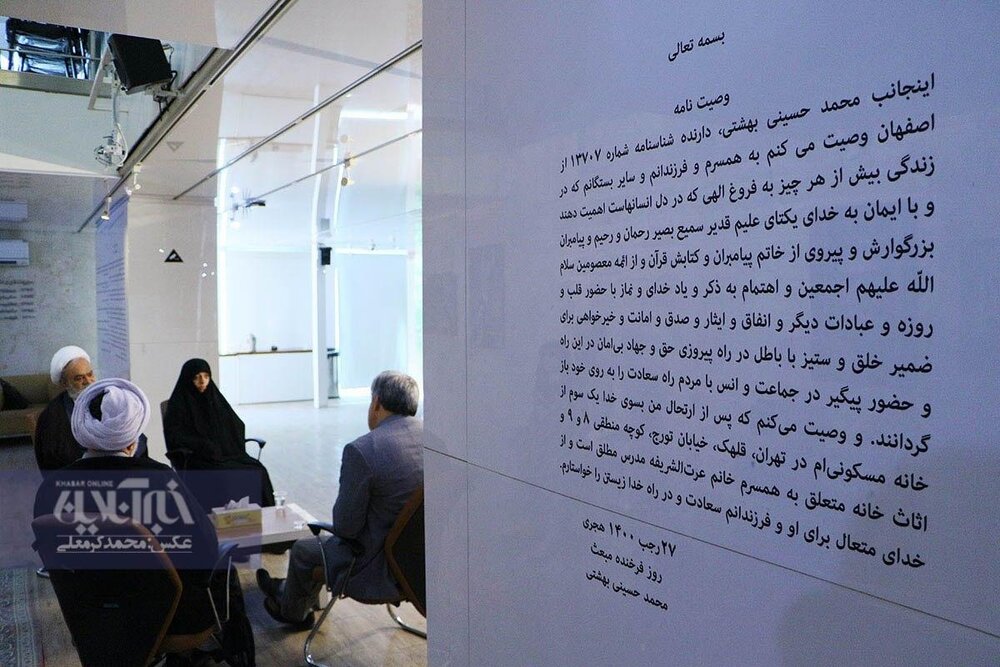 بسمه تعالی
وصیت نامه
اینجانب محمد حسینی بهشتی، دارنده شناسنامه شماره ۱۳۷۰۷ از
اصفهان وصیت می کنم به همسرم و فرزندانم و سایر بستگانم که در
زندگی بیش از هر چیز به فروغ الهی که در دل انسانهاست اهمیت دهند
و با ایمان به خدای یکتای علیم قدیر سمیع بصیر رحمان و رحیم و پیامبران
بزرگوارش و پیروی از خاتم پیامبران و کتابش قرآن و از ائمه معصومین سلام
اللّه علیهم اجمعین و اهتمام به ذکر و یاد خدای و نماز با حضور قلب و
روزه و عبادات دیگر و انفاق و ایثار و صدق و امانت و خیرخواهی برای
ضمیر خلق و ستیز با باطل در راه پیروزی حق و جهاد بی‌امان در این راه
و حضور پیگیر در جماعت و انس با مردم راه سعادت را به روی خود باز
گردانند. و وصیت می‌کنم که پس از ارتحال من بسوی خدا یک سوم از
خانه مسکونی‌ام در تهران، قلهک، خیابان تورج، کوچه منطقی ۸ و ۹ و
اثاث خانه متعلق به همسرم خانم عزت‌الشریفه مدرس مطلق است و از
خدای متعال برای او و فرزندانم سعادت و در راه خدا زیستن را خواستارم.
۲۷ رجب ۱۴۰۰ هجری
روز فرخنده مبعث
محمد حسینی بهشتی
KHABAR ONLINE
خبرآنلاین
عکس: محمد کرمعلی